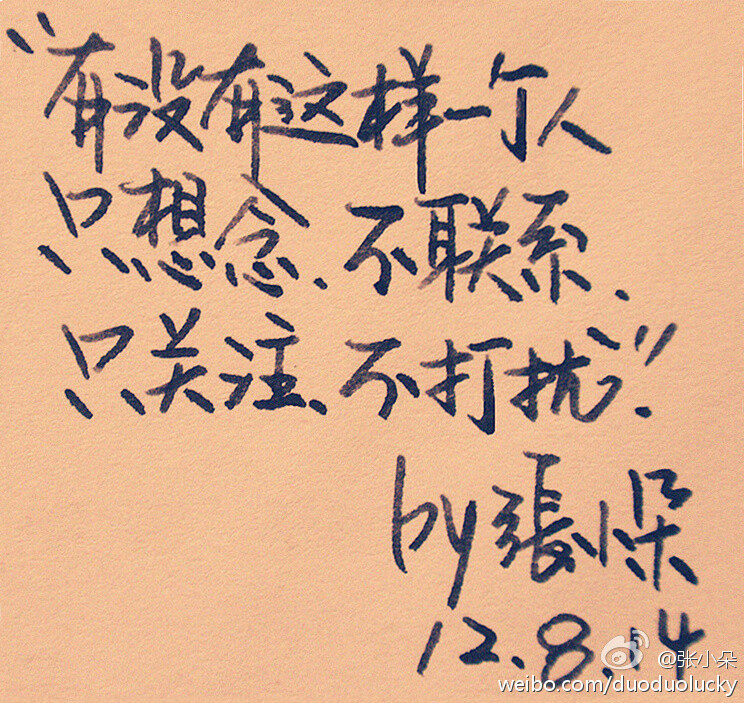 “有没有这样一个人
只想念、不联系、
只关注、不打扰”.
by 張小朵
12.8.14
@张小朵
weibo.com/duoduolucky